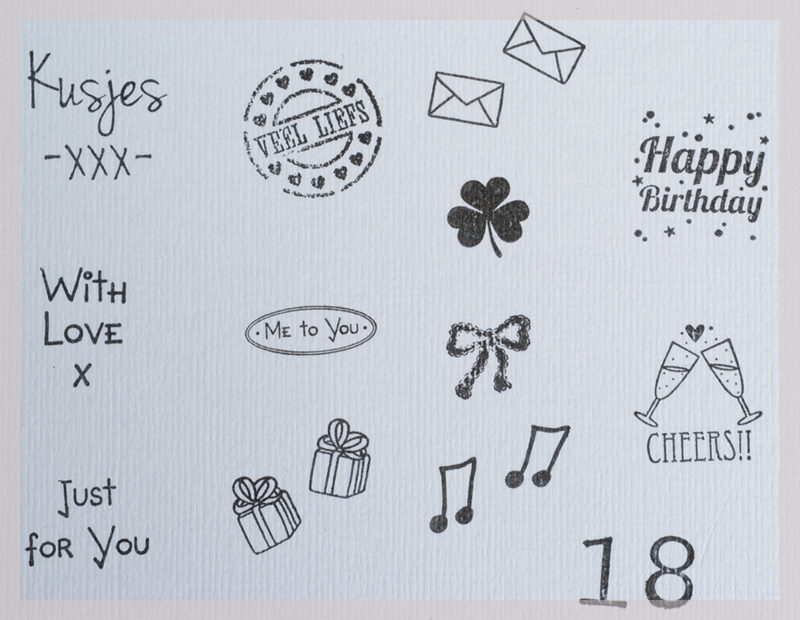 Kusjes
-XXX-
VEEL LIEFS
Happy
Birthday
With
Love
x
Me to You
CHEERS!!
Just
for You
18